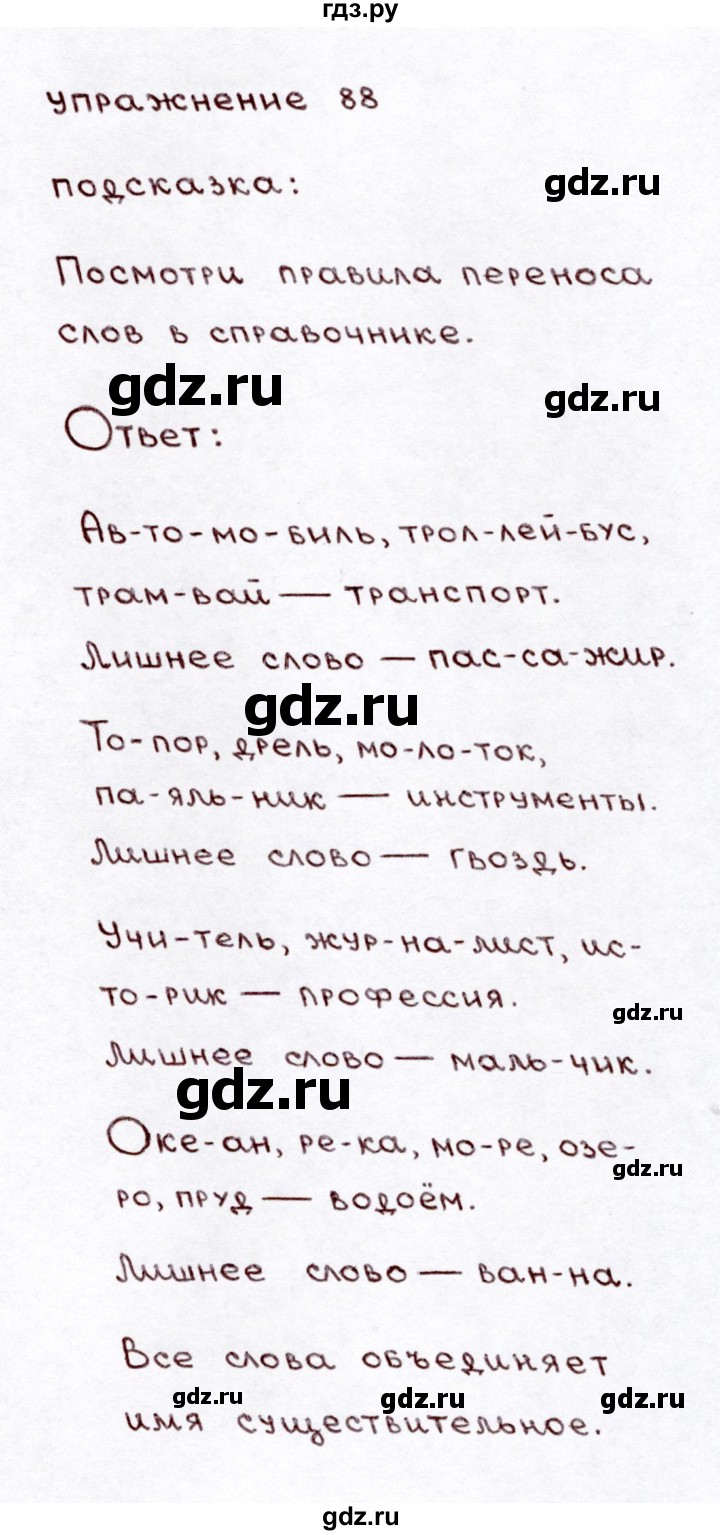 гдз.ру
упражнение 88
подсказка:
gdz.ru
Посмотри правила переноса
слов в справочнике.
gdz.ru
gdz.ru
Ответ:
Ав-то-мо-биль, трол-лей-бус,
трам-вай — транспорт.
Лишнее слово — пас-са-жир.
gdz.ru
То-пор, дрель, мо-ло-ток,
па-яль-ник — инструменты.
Лишнее слово — гвоздь.
Учи-тель, жур-на-лист, ис-
то-рик — профессия.
gdz.ru
Лишнее слово — маль-чик.
gdz.ru
Оке-ан, ре-ка, мо-ре, озе-
gdz.ru
ро, пруд — водоём.
Лишнее слово — ван-на.
Все слова объединяет
gdz.ru
gdz.ru
gdz.ru
имя существительное.
gdz.ru